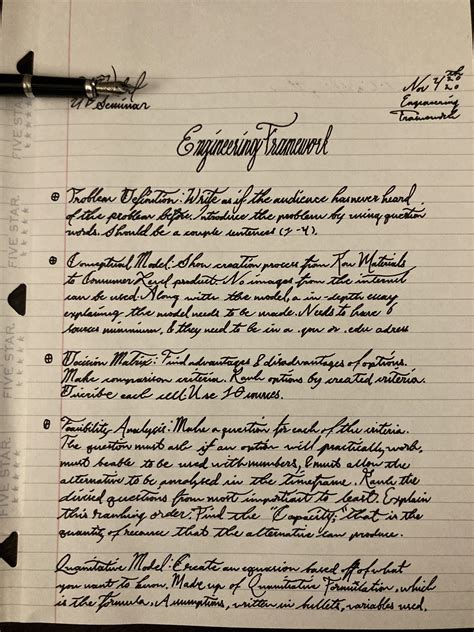 UP Seminar
Nov 4th 2020
Engineering
Framework
Engineering Framework
⊕ Problem Definition: Write as if the audience has never heard
of the problem before. Introduce the problem by using question
words. Should be a couple sentences (2-4).
⊕ Conceptual Model: Show creation process from Raw Materials
to Consumer Level product. No images from the internet
can be used. Along with the model, a in-depth essay
explaining the model needs to be made. Needs to have 6
sources minimum, & they need to be in a .gov or .edu adress
⊕ Decision Matrix: Find advantages & disadvantages of options.
Make comparison criteria. Rank options by created criteria.
Discribe each cell. Use 10 sources.
⊕ Feasibility Analysis: Make a question for each of the criteria.
The question must ask if an option will practically work,
must be able to be used with numbers, & must allow the
alternative to be analysed in the timeframe. Rank the
divised questions from most important to least. Explain
this ranking order. Find the "Capacity," that is the
quantity of resource that the alternative can produce.
Quantitative Model: Create an equasion based off of what
you want to know. Made up of Quantitative Formulation, which
is the formula. Assumptions, written in bullets, variables used.
FIVE STAR.
FIVE STAR.
FIVE STAR.
FIVE STAR